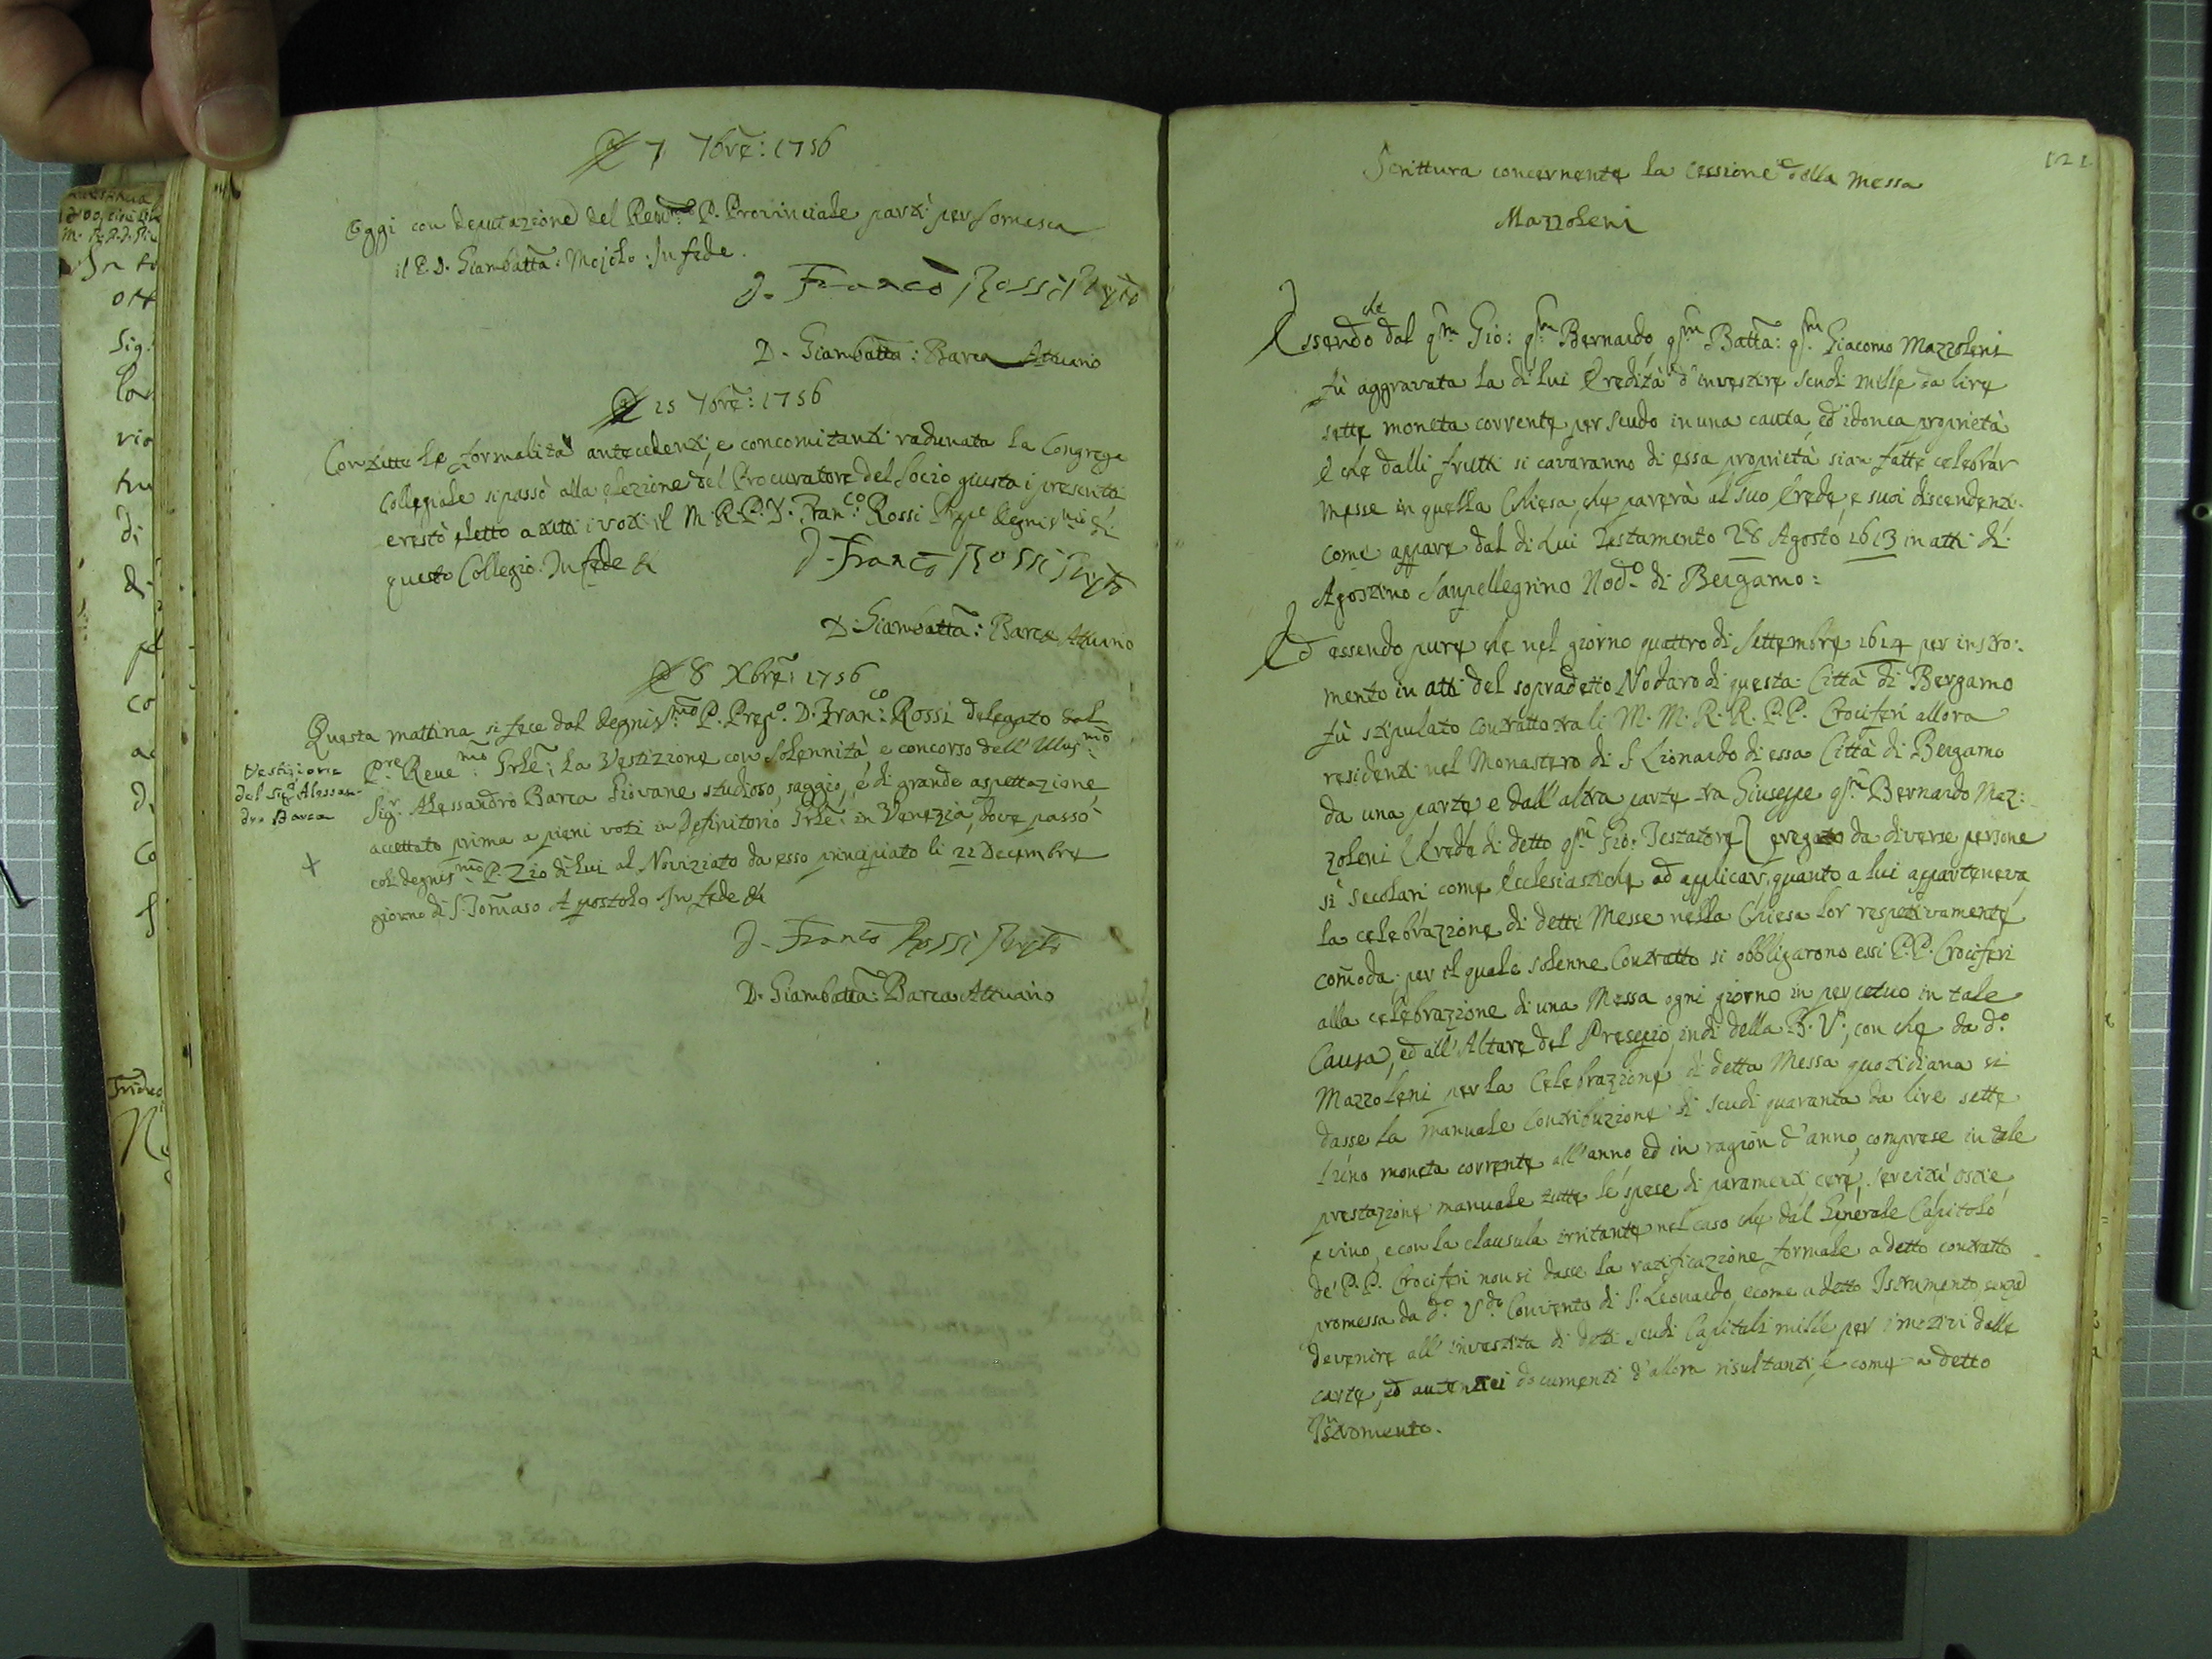 A 7 7bre: 1756
Oggi con deputazione del Revmo P. Provinciale partì per Somasca
il P. D. Giambatta: Mojoli. In fede.
D. Franco Rossi Prepto
D. Giambatta: Barca Attuario
A 25 7bre: 1756
Con tutte le formalità antecedenti e concomitanti radunata la Congrega
Collegiale si passò alla elezione del Procuratore del Socio giusta i prescritti
e restò eletto a tutti i voti il M. R. P. D. Franco: Rossi degnismo di
questo Collegio. In fede &
D. Franco Rossi Prepto
D. Giambatta: Barca Attuario
A 8 Xbre: 1756
Questa mattina si fece dal degnismo: P. Prepo. D. Franco: Rossi delegato dal
Pre Revemo: Grle: la Vestizione con solennità, e concorso dell' Illusmo:
Sigr. Alessandro Barca Giovane studioso, saggio, e di grande aspettazione,
accettato prima a pieni voti in Definitorio Grle: in Venezia, dove passò
col degnismo P. Zio di lui al Noviziato da esso principiato li 21 Decembre
giorno di S. Tomaso Apostolo. In fede &
Vestizione
del Sigr Alessan-
dro Barca
+
D. Franco Rossi Prepto
D. Giambatta: Barca Attuario
121
Scrittura concernente la cessione della Messa
Mazzoleni
Essendo che dal qm Gio: qm Bernardo qm Batta: qm Giacomo Mazzoleni
fù aggravata la di lui Eredità d' investire Scudi mille da lire
sette moneta corrente per scudo in una cauta, ed idonea proprietà
e che dalli frutti si cavaranno di essa proprietà sian fatte celebrar
Messe in quella Chiesa, che parerà al suo Erede, e suoi discendenti.
come appare dal di Lui Testamento 28 Agosto 1613 in atti di
Agostino Sanpellegrino Nodo. di Bergamo:
Ed essendo pure che nel giorno quattro di Settembre 1614 per instro:
mento in atti del sopradetto Nodaro di questa Città di Bergamo
fù stipulato contratto tra li M. M. R. R. P. P. Crociferi allora
residenti nel Monastero di S. Lionardo di essa Città di Bergamo
da una parte e dall' altra parte tra Giuseppe qm Bernardo Maz:
zoleni Erede di detto qm Gio: Testatore) pregato da diverse persone
sì secolari come Ecclesiastiche ad applicar, quanto a lui apparteneva
la celebrazione di dette Messe nella Chiesa lor respetivamente
comoda. per il quale solenne Contratto si obbligarono essi P. P. Crociferi
alla celebrazione di una Messa ogni giorno in perpetuo in tale
Causa, ed all' Altare del Presepio, indi della B. V., con che da do.
Mazzoleni per la Celebrazione di detta Messa quotidiana si
dasse la manuale Contribuzione di scudi quaranta da lire sette
l' uno moneta corrente all' anno ed in ragion d' anno, comprese in tale
prestazione manuale tutte le spese di paramenti cere, servitù ostie
e vino, e con la clausula irritante nel caso che dal Generale Capitolo
de' P. P. Crociferi non si dasse la ratificazione formale a detto contratto
promessa da do. Vdo Convento di S. Leonardo, e come a detto Istrumento, senza
devenire all' investita di detti scudi Capitali mille per i motivi dalle
carte, ed autentici documenti d' allora risultanti, e come a detto
Instromento.